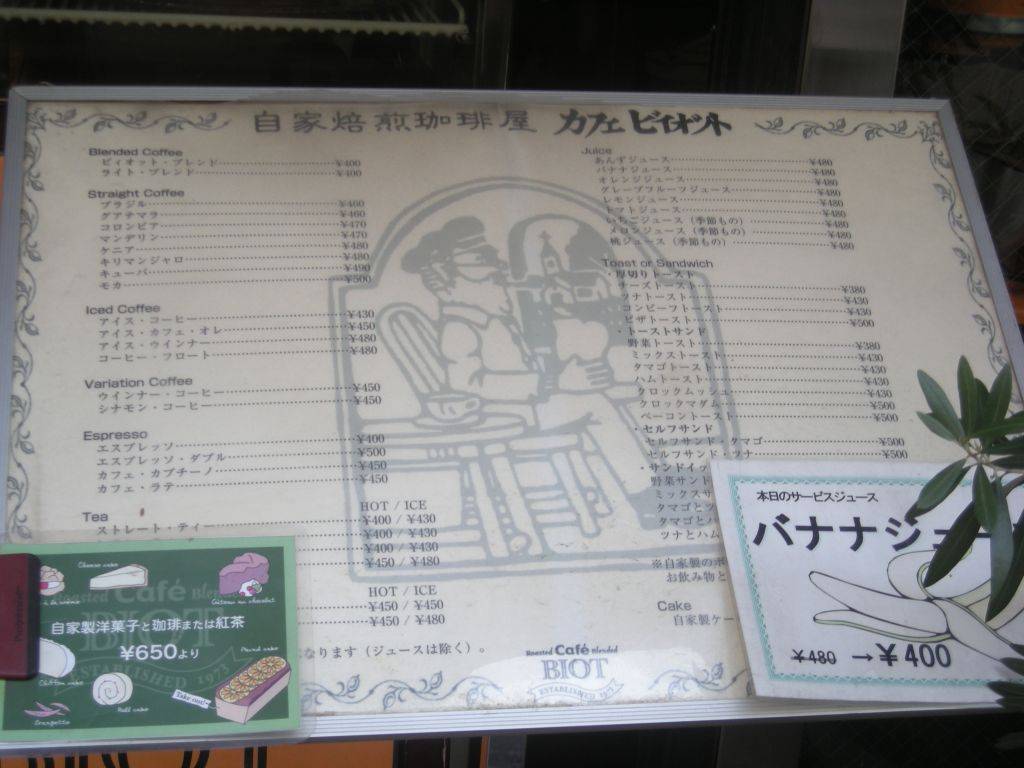 自家焙煎珈琲屋 カフェ ビィオット
Blended Coffee
ビィオット・ブレンド ¥400
ライト・ブレンド ¥400
Straight Coffee
ブラジル ¥460
グアテマラ ¥460
コロンビア ¥470
マンデリン ¥470
ケニア ¥480
キリマンジャロ ¥480
キューバ ¥490
モカ ¥500
Iced Coffee
アイス・コーヒー ¥430
アイス・カフェ・オレ ¥450
アイス・ウインナー ¥480
コーヒー・フロート ¥480
Variation Coffee
ウインナー・コーヒー ¥450
シナモン・コーヒー ¥450
Espresso
エスプレッソ ¥400
エスプレッソ・ダブル ¥500
カフェ・カプチーノ ¥450
カフェ・ラテ ¥450
HOT / ICE
Tea
ストレート・ティー ¥400 / ¥430
¥400 / ¥430
¥400 / ¥430
¥450 / ¥480
HOT / ICE
¥450 / ¥450
¥450 / ¥480
なります（ジュースは除く）。
Juice
あんずジュース ¥480
バナナジュース ¥480
オレンジジュース ¥480
グレープフルーツジュース ¥480
レモンジュース ¥480
トマトジュース ¥480
いちごジュース（季節もの） ¥480
メロンジュース（季節もの） ¥480
桃ジュース（季節もの） ¥480
Toast or Sandwich
・厚切りトースト
チーズトースト ¥380
ツナトースト ¥430
コンビーフトースト ¥430
ピザトースト ¥500
・トーストサンド
野菜トースト ¥380
ミックストースト ¥430
タマゴトースト ¥430
ハムトースト ¥430
クロックムッシュ ¥430
クロックマダム ¥500
ベーコントースト ¥500
・セルフサンド
セルフサンド・タマゴ ¥500
セルフサンド・ツナ ¥500
・サンドイッ
野菜サンド
ミックスサ
タマゴとツ
タマゴとハ
ツナとハム
※自家製の
お飲み物と
Cake
自家製ケー
Roasted Café Blended
BIOT
ESTABLISHED 1973
Cheese cake
Gâteau au chocolat
Roasted Café Ble
BIOT
自家製洋菓子と珈琲または紅茶
¥650より
ESTABLISHED 1973
Chiffon cake
Roll cake
Pound cake
Take out!
Orangette
本日のサービスジュース
バナナジュー
¥480 →¥400